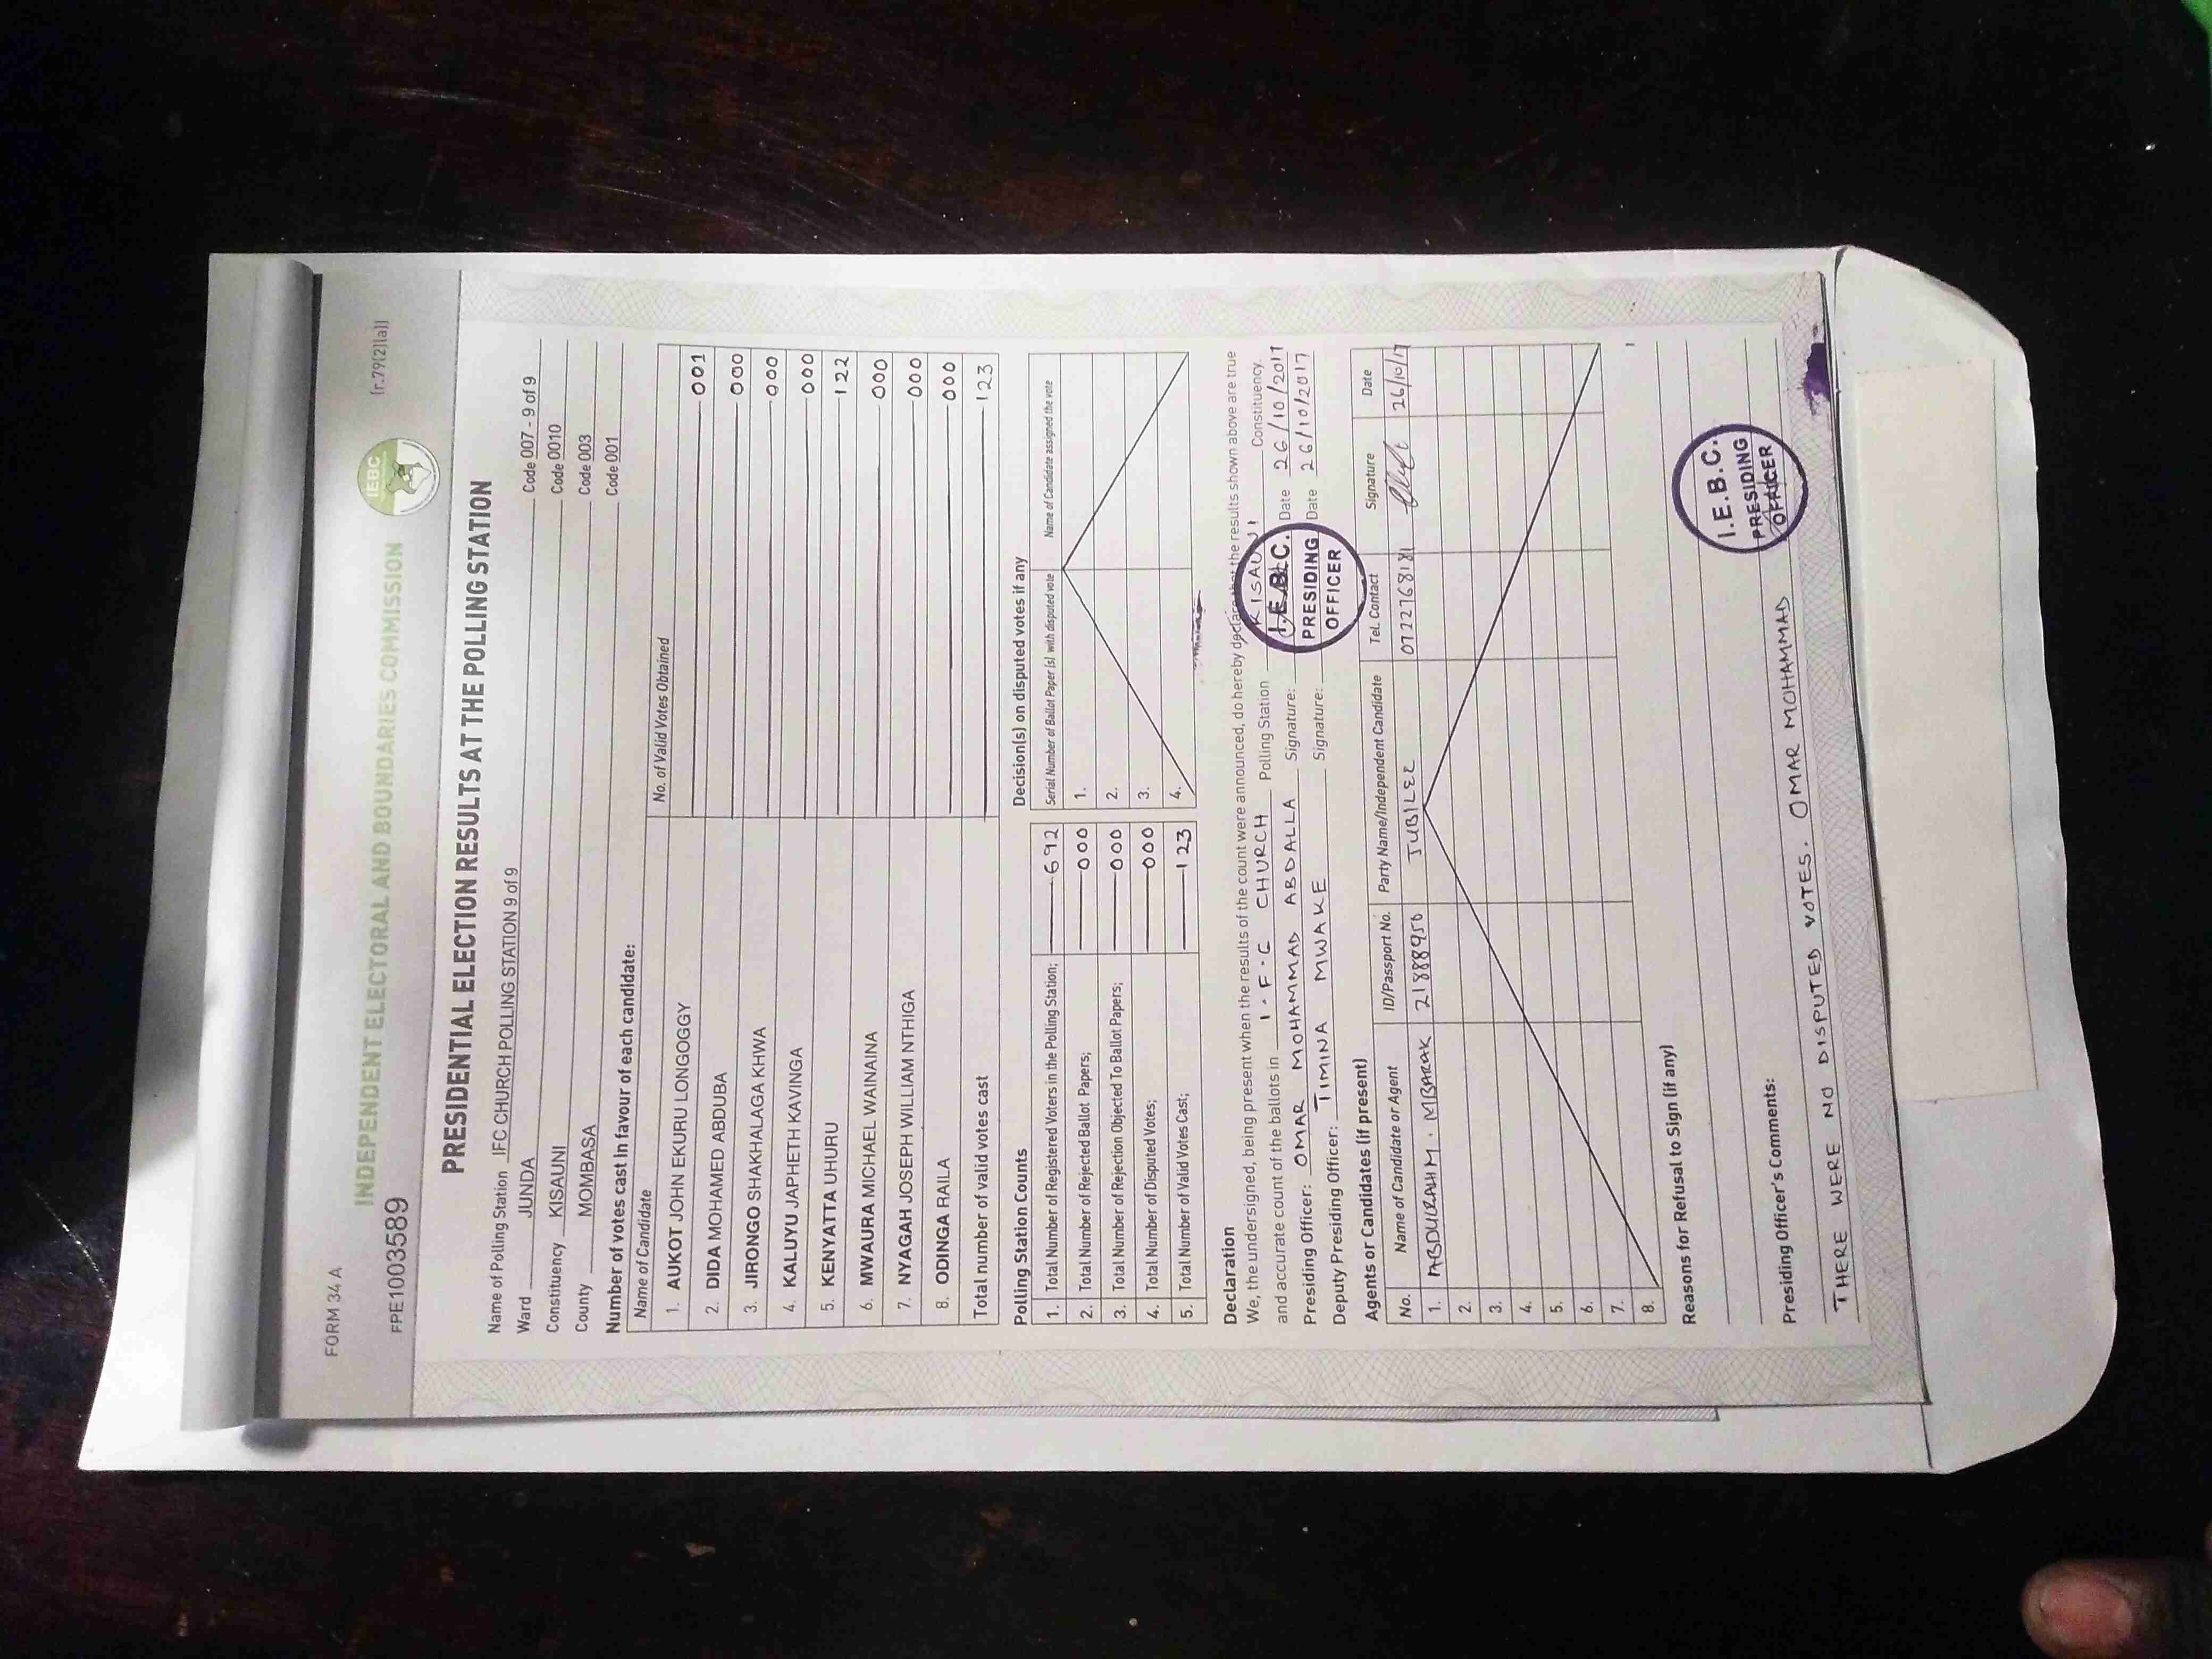 FORM 34 A
INDEPENDENT ELECTORAL AND BOUNDARIES COMMISSION
IEBC
[r.79(2)(a)]
FPE1003589
PRESIDENTIAL ELECTION RESULTS AT THE POLLING STATION
Name of Polling Station IFC CHURCH POLLING STATION 9 of 9
Ward JUNDA Code 007 - 9 of 9
Constituency KISAUNI Code 0010
County MOMBASA Code 003
Code 001
Number of votes cast in favour of each candidate:
Name of Candidate No. of Valid Votes Obtained
1. AUKOT JOHN EKURU LONGOGGY 001
2. DIDA MOHAMED ABDUBA 000
3. JIRONGO SHAKHALAGA KHWA 000
4. KALUYU JAPHETH KAVINGA 000
5. KENYATTA UHURU 122
6. MWAURA MICHAEL WAINAINA 000
7. NYAGAH JOSEPH WILLIAM NTHIGA 000
8. ODINGA RAILA 000
Total number of valid votes cast 123
Polling Station Counts
1. Total Number of Registered Voters in the Polling Station; 692
2. Total Number of Rejected Ballot Papers; 000
3. Total Number of Rejection Objected To Ballot Papers; 000
4. Total Number of Disputed Votes; 000
5. Total Number of Valid Votes Cast; 123
Decision(s) on disputed votes if any
Serial Number of Ballot Paper (s) with disputed vote Name of Candidate assigned the vote
1.
2.
3.
4.
Declaration
We, the undersigned, being present when the results of the count were announced, do hereby declare that the results shown above are true
and accurate count of the ballots in I.F.C CHURCH Polling Station KISAUNI Constituency.
Presiding Officer: OMAR MOHAMMAD ABDALLA Signature: Date 26/10/2017
Deputy Presiding Officer: TIMINA MWAKE Signature: Date 26/10/2017
I.E.B.C.
PRESIDING
OFFICER
Agents or Candidates (if present)
No. Name of Candidate or Agent ID/Passport No. Party Name/Independent Candidate Tel. Contact Signature Date
1. ABDULRAHM. MBARAK 21888950 JUBILEE 0722768181 26/10/17
2.
3.
4.
5.
6.
7.
8.
Reasons for Refusal to Sign (if any)
I.E.B.C.
PRESIDING
OFFICER
Presiding Officer's Comments:
THERE WERE NO DISPUTED VOTES. OMAR MOHAMMAD